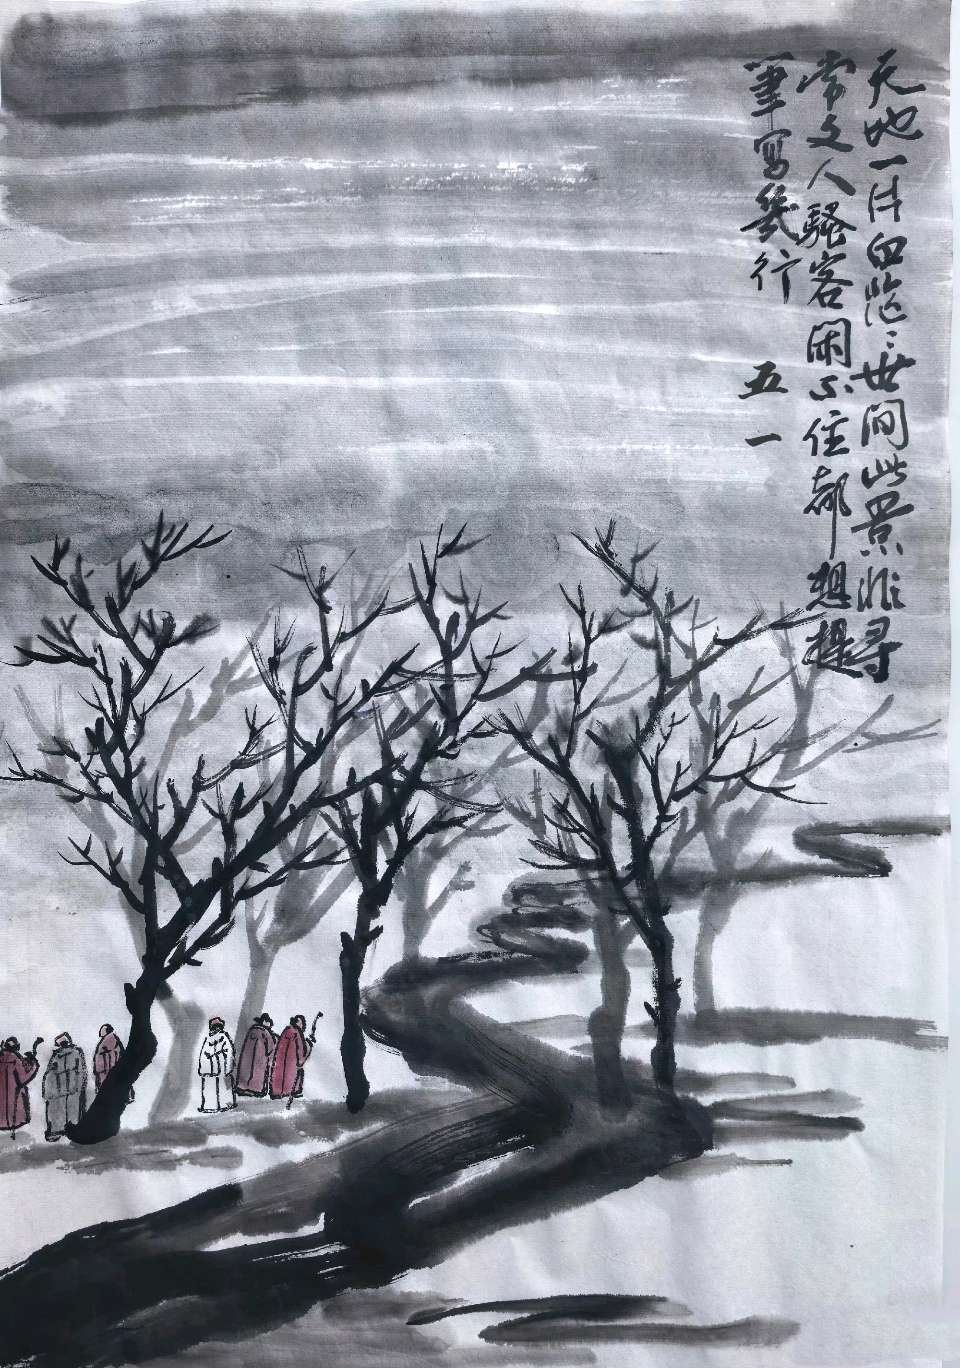 天地一片白茫々世间此景非寻
常文人騷客闲不住都想提
筆寫幾行 五一